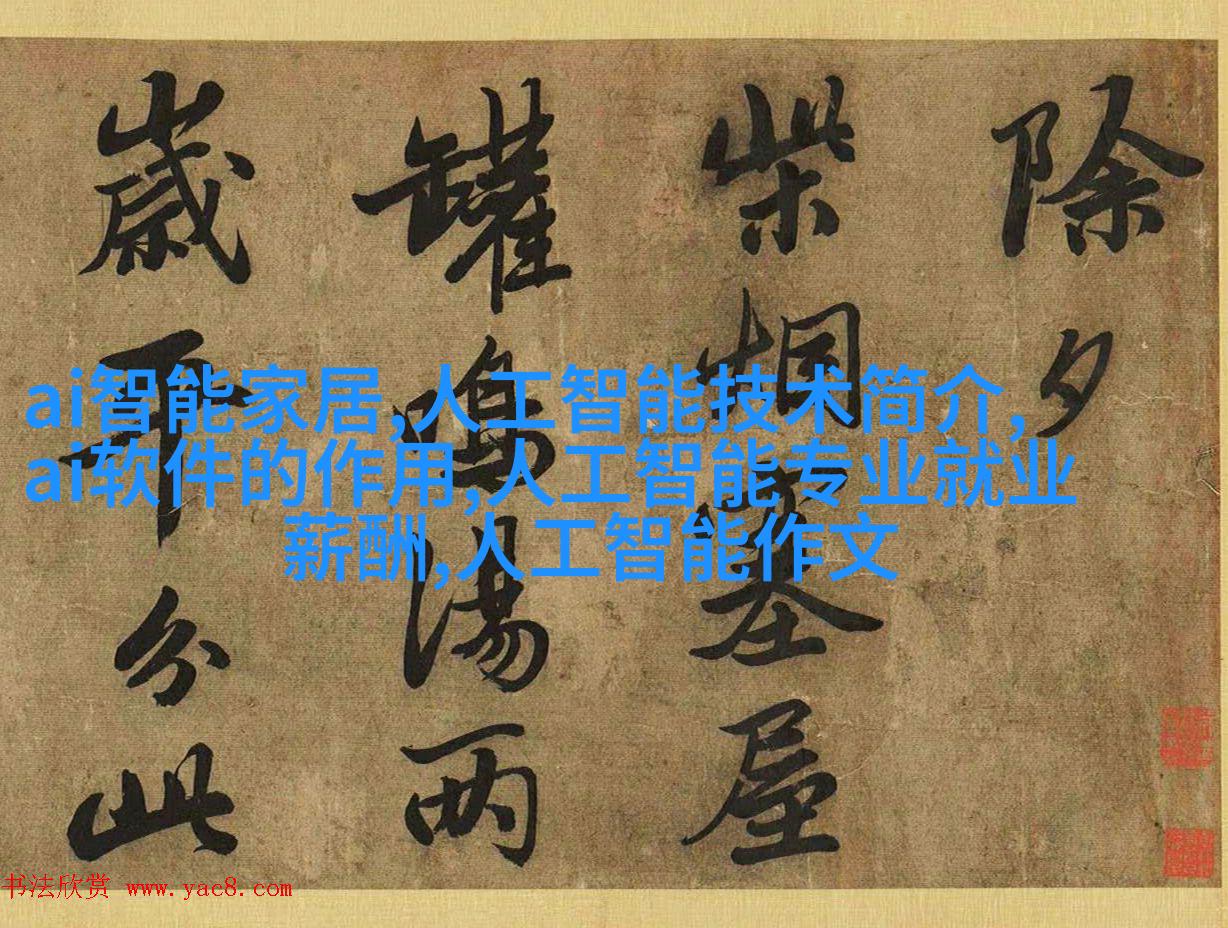 除夕
柴烟塞屋
罐鳴湯兩
歲平分此
ai智能家居,人工智能技术简介,
ai软件的作用,人工智能专业就业
薪酬,人工智能作文
书法欣赏 www.yac8.com